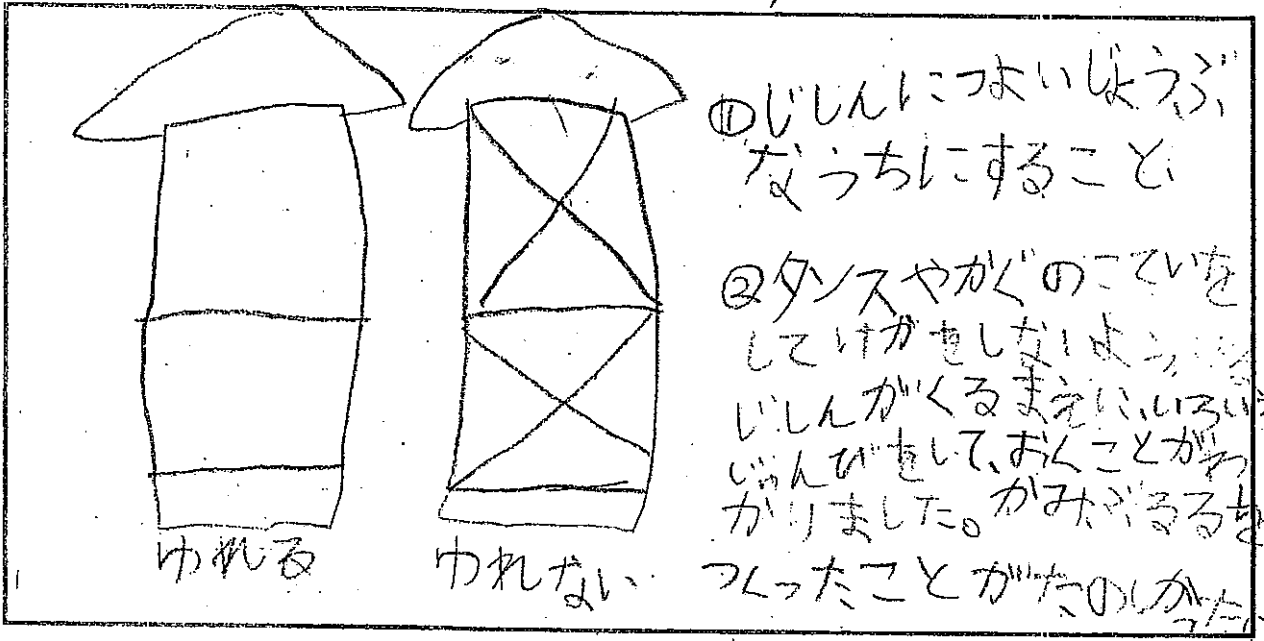 ゆれる
ゆれない
①じしんにつよいじょうぶ
なうちにすること
②タンスやかぐのこていを
してけがをしないよう
じしんがくるまえに、いろい
じゅんびをして、おくことがわ
かりました。かみぶるるを
つくったことがたのしかった